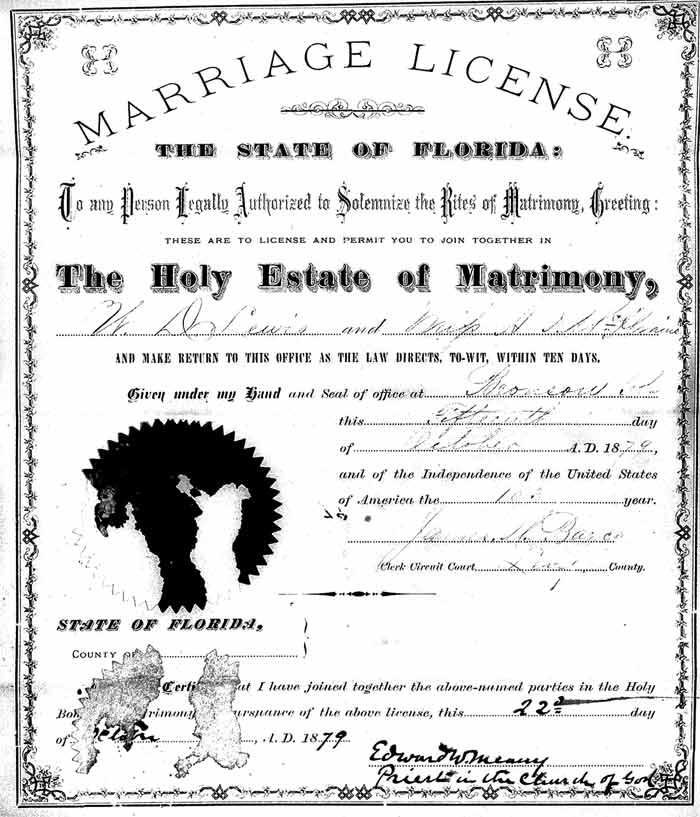 MARRIAGE LICENSE.
THE STATE OF FLORIDA:
To any Person Legally Authorized to Solemnize the Rites of Matrimony, Greeting:
THESE ARE TO LICENSE AND PERMIT YOU TO JOIN TOGETHER IN
The Holy Estate of Matrimony,
W. D. Lewis and Miss A
AND MAKE RETURN TO THIS OFFICE AS THE LAW DIRECTS, TO-WIT, WITHIN TEN DAYS.
Given under my Hand and Seal of office at Bronson
this Fifteenth day
of October A. D. 1879,
and of the Independence of the United States
of America the 103 year.
James M. Barco
Clerk Circuit Court Levy County.
STATE OF FLORIDA,
COUNTY OF
I have joined together the above-named parties in the Holy
of the above license, this 22d day
of A. D. 1879
Edward W. Meany
Priest in the Church of God